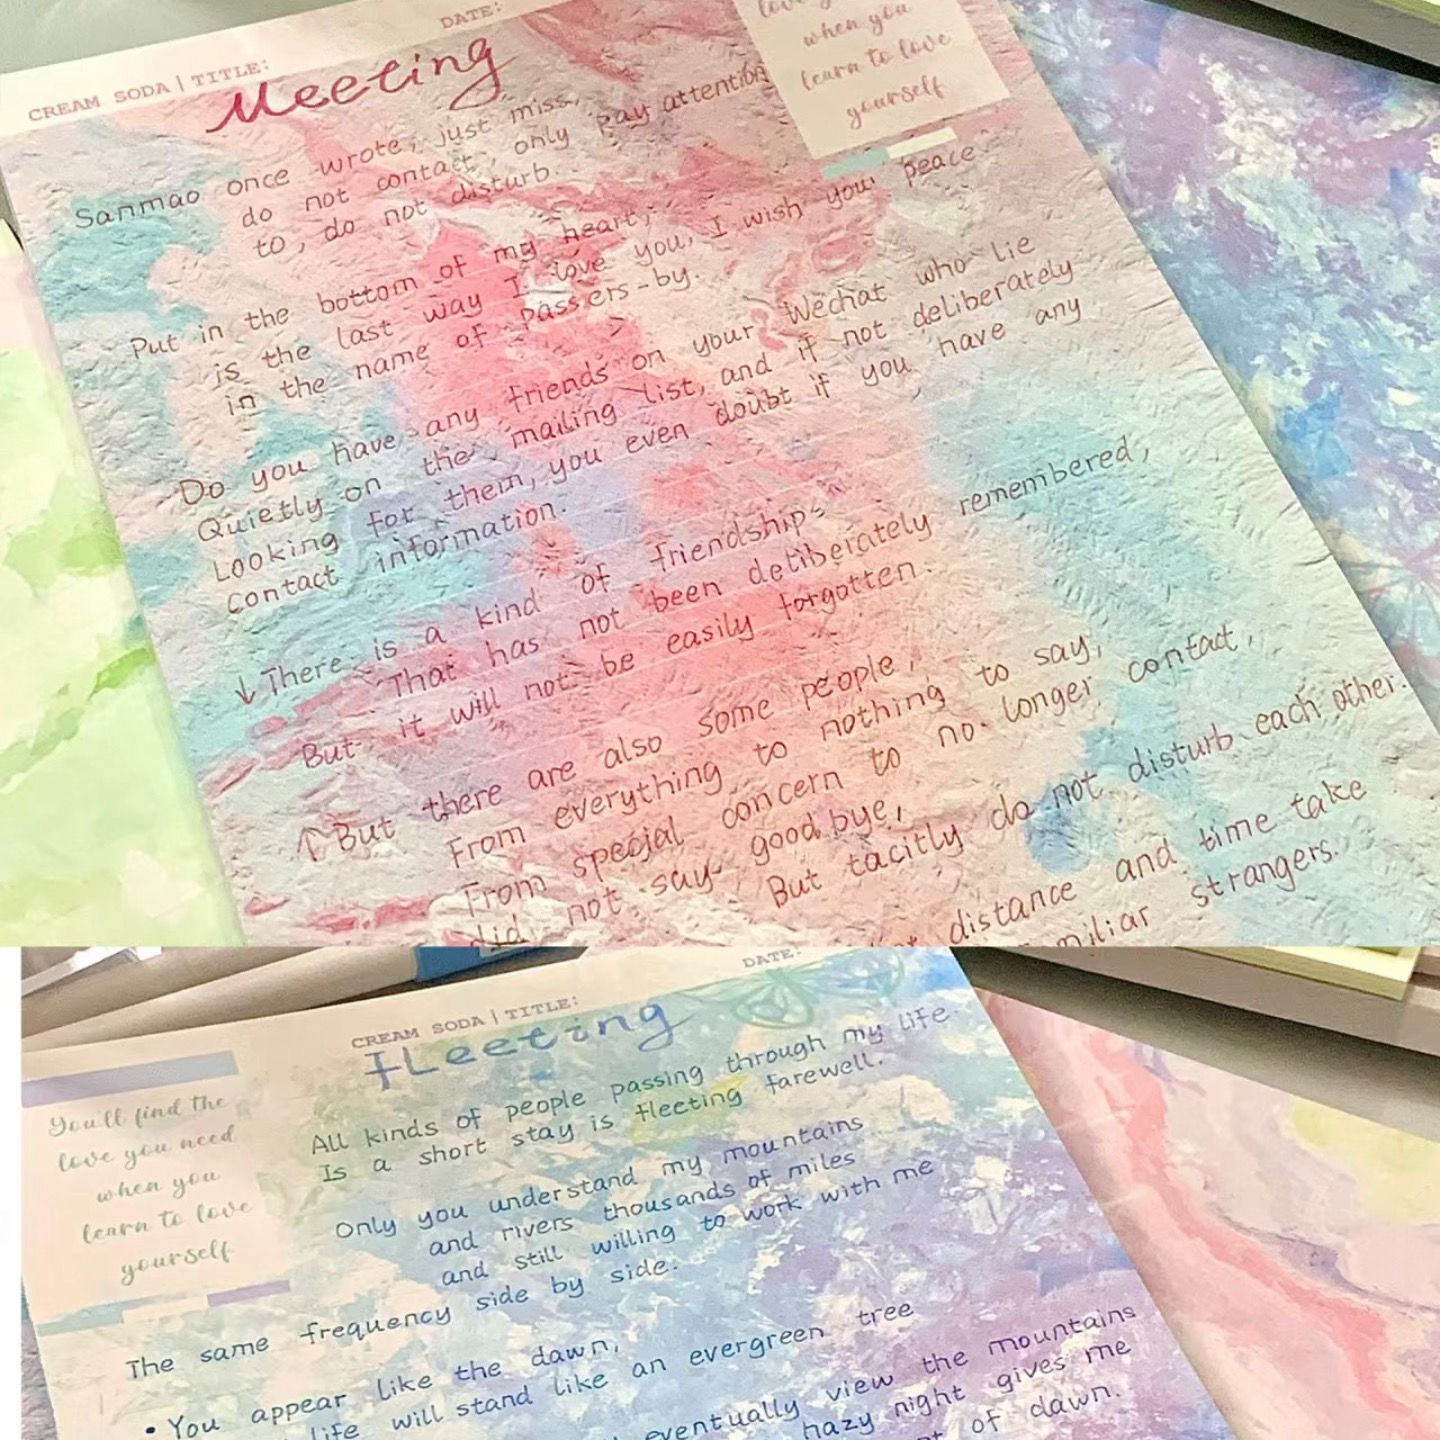 DATE:
CREAM SODA | TITLE:
Meeting
when you
learn to love
yourself
Sanmao once wrote, just miss,
do not contact, only pay attention
to, do not disturb.
Put in the bottom of my heart,
is the last way I love you, I wish you peace
in the name of passers-by.
Do you have any friends on your Wechat who lie
Quietly on the mailing list, and if not deliberately
Looking for them, you even doubt if you have any
contact information.
↓There is a kind of friendship
That has not been deliberately remembered,
But it will not be easily forgotten.
↑But there are also some people,
From everything to nothing to say,
From special concern to no longer contact,
did not say goodbye,
But tacitly do not disturb each other.
distance and time take
strangers.
DATE:
CREAM SODA | TITLE:
fLeeting
You'll find the
love you need
when you
learn to love
yourself
All kinds of people passing through my life.
Is a short stay is fleeting farewell.
Only you understand my mountains
and rivers thousands of miles
and still willing to work with me
The same frequency side by side.
• You appear like the dawn,
life will stand like an evergreen tree
eventually view the mountains
hazy night gives me
of dawn.